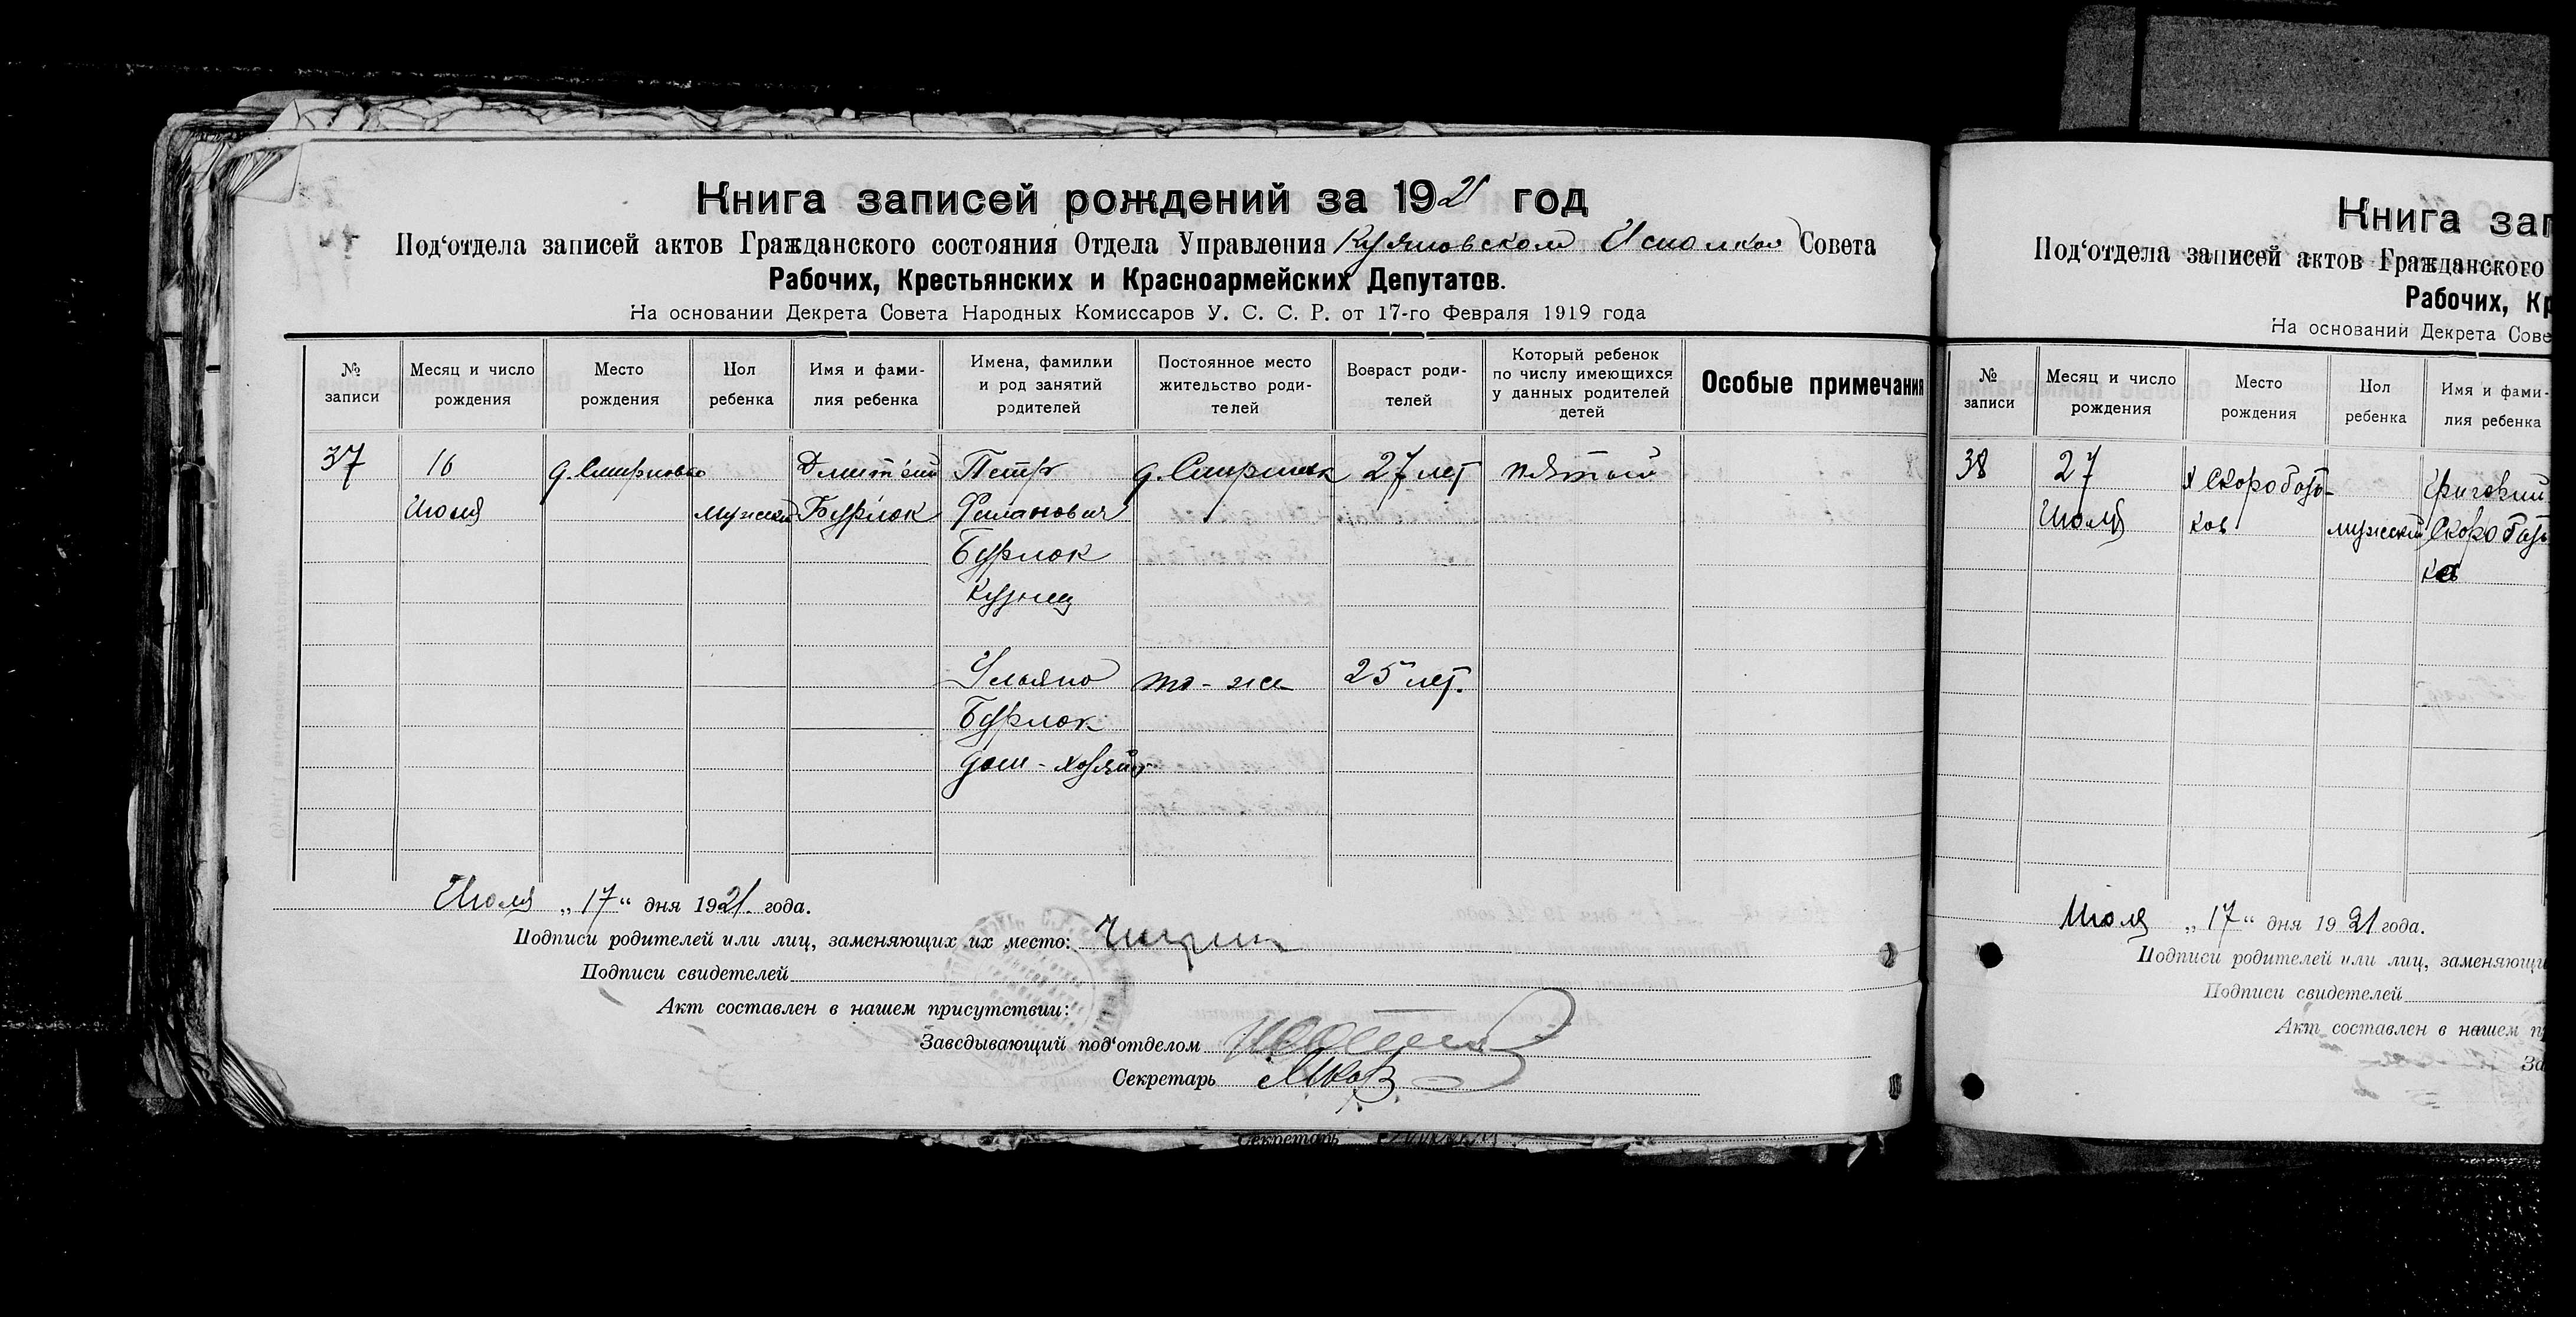 Книга записей рождений за 1921 год
Под‘отдела записей актов Гражданского состояния Отдела Управления Исполком Совета
Рабочих, Крестьянских и Красноармейских Депутатов.
На основании Декрета Совета Народных Комиссаров У. С. С. Р. от 17-го Февраля 1919 года
№ записи
Месяц и число рождения
Место рождения
Пол ребенка
Имя и фами-
лия ребенка
Имена, фамилии
и род занятий
родителей
Постоянное место
жительство роди-
телей
Возраст роди-
телей
Который ребенок
по числу имеющихся
у данных родителей
детей
Особые примечания
37
16
Июля
д.
мужский
Дмитрий
Бурлок
Петр
Филанович
Бурлок
Кузнец
д.
27 лет
пятый
Ульяна
Бурлок
дом-хозяйст
то-же
25 лет.
Июля „17“ дня 1921. года.
Подписи родителей или лиц, заменяющих их место:
Подписи свидетелей
Акт составлен в нашем присутствии:
Заведывающий под‘отделом
Секретарь
Секретарь
Книга зап
Под‘отдела записей актов Гражданского
Рабочих, Кр
На основании Декрета Сове
№ записи
Месяц и число рождения
Место рождения
Пол ребенка
Имя и фами-
лия ребенка
38
27
Июля
х Скоробогать-
ков
мужский
Григорий
Скоробогать
ков
Июля „17“ дня 1921 года.
Подписи родителей или лиц, заменяющи
Подписи свидетелей
Акт составлен в нашем п
За